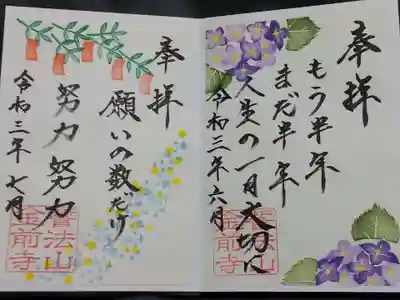 奉拝
もう半年
まだ半年
人生の一日大切に
令和三年六月
奉拝
願いの数だけ
努力努力
令和三年七月